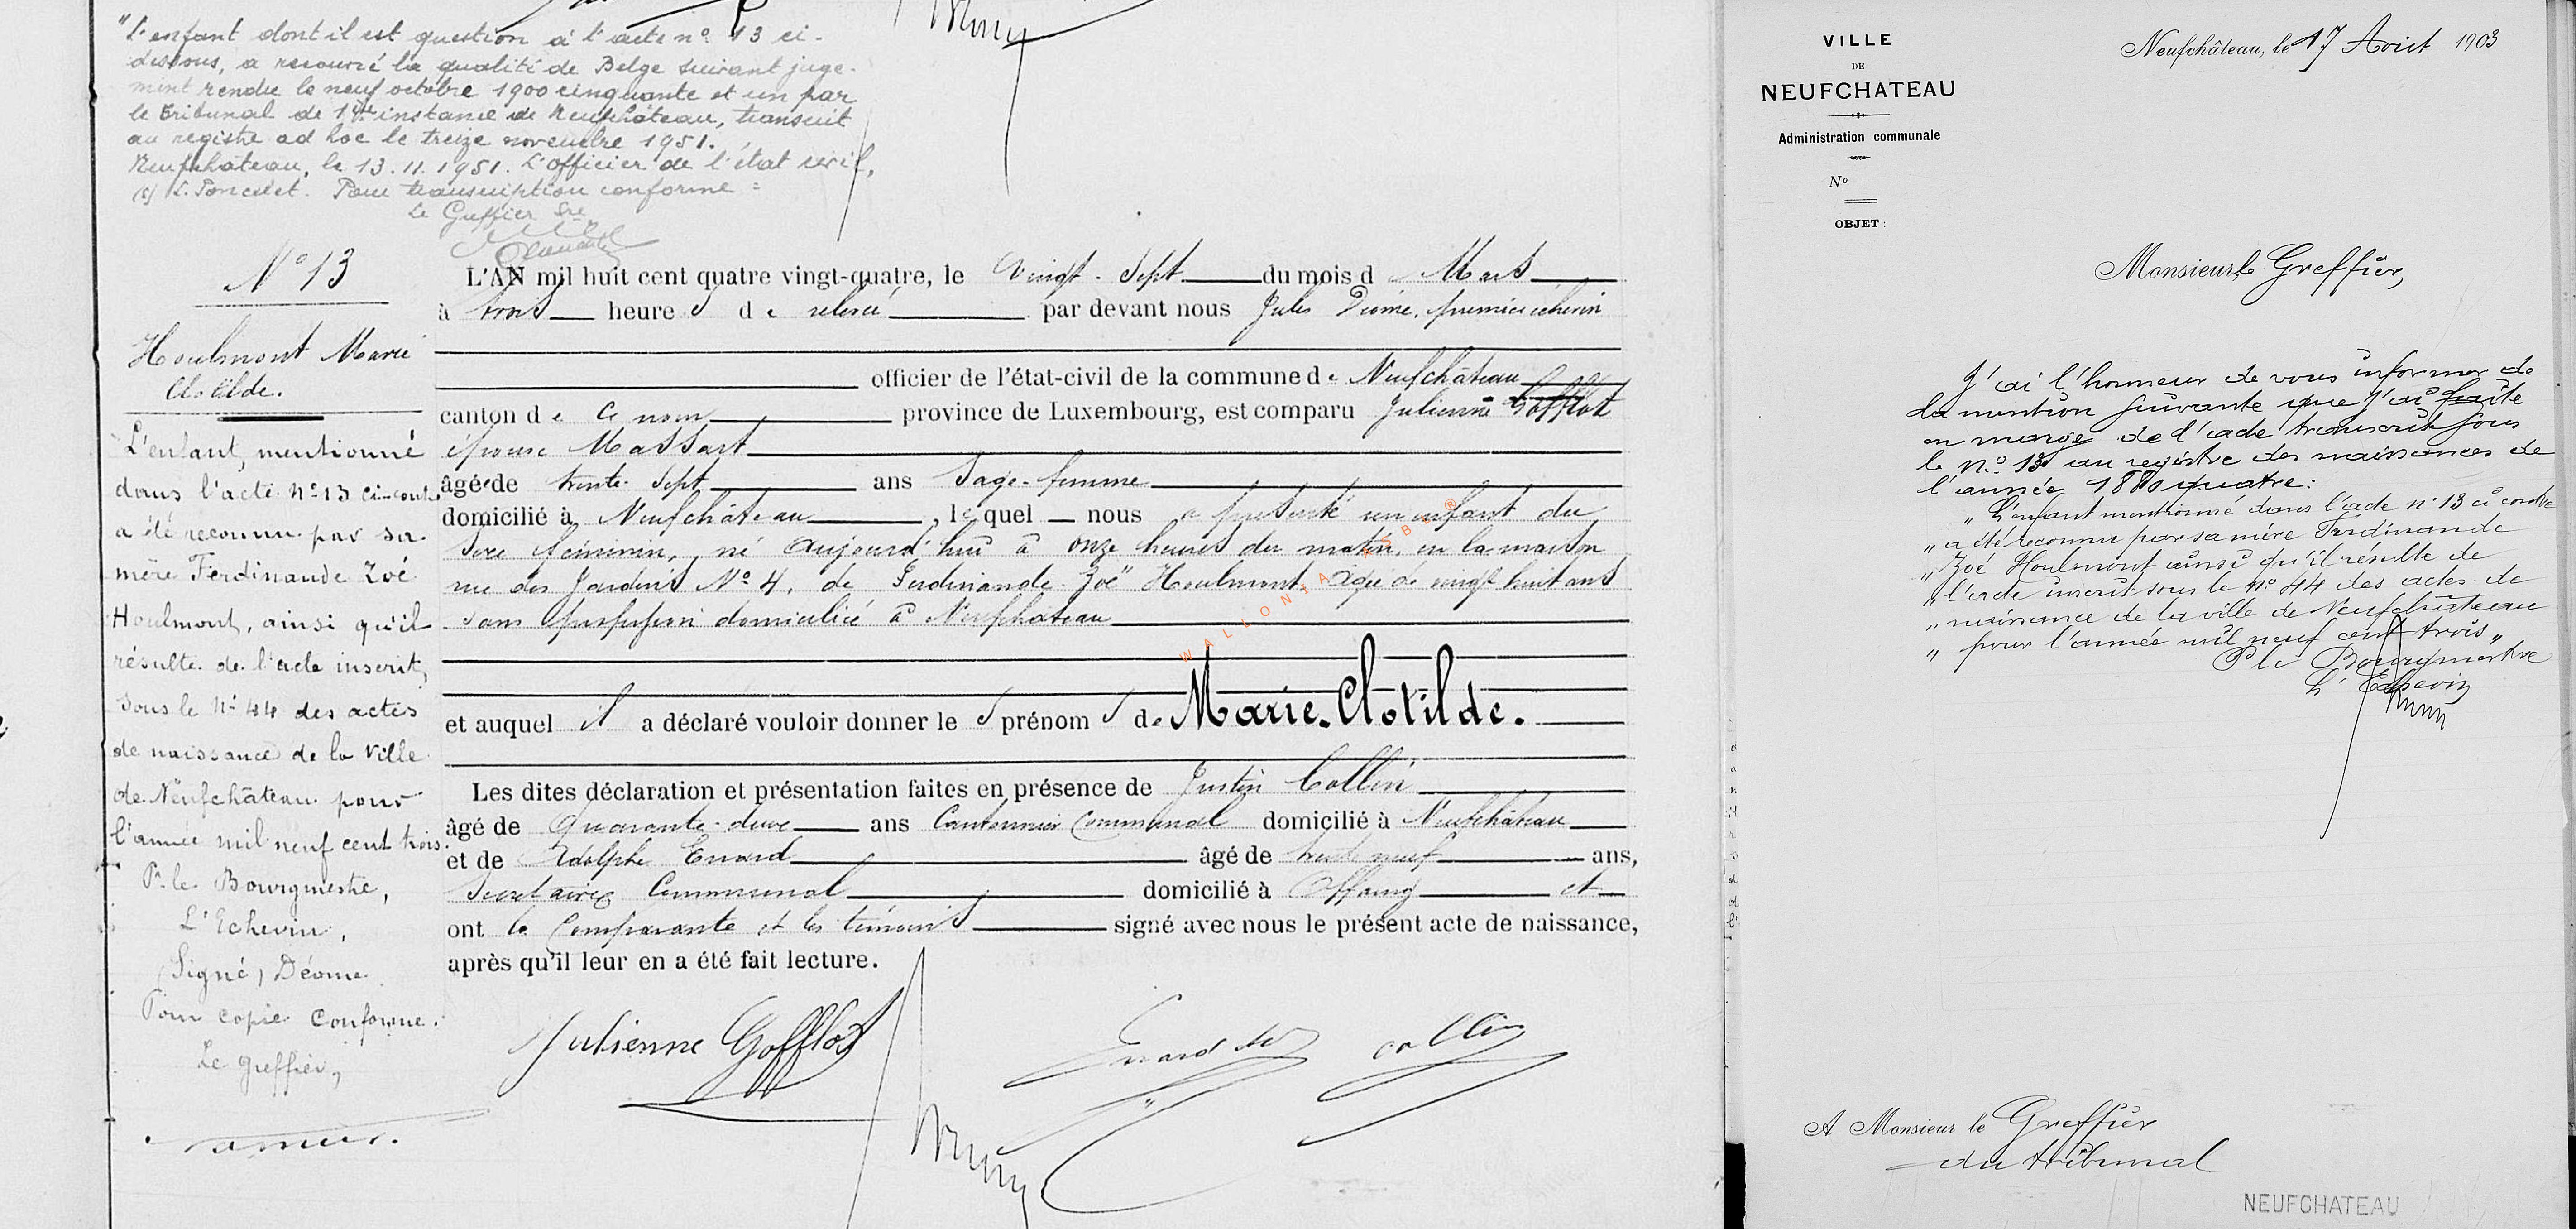 "L'enfant dont il est question à l'acte n° 13 ci-
dessous, a recouvré la qualité de Belge suivant juge-
ment rendu le neuf octobre 1900 cinquante et un par
le Tribunal de 1ère instance de Neufchâteau, transcrit
au registre ad hoc le treize novembre 1951.
Neufchâteau, le 13.11.1951. L'officier de l'état civil,
(s) L. Poncelet. Pour transcription conforme :
Le Greffier
N° 13
Houlmont Marie
Clotilde.
L'enfant, mentionné
dans l'acte N° 13 ci-contre
a été reconnu par sa
mère Ferdinande Zoé
Houlmont, ainsi qu'il
résulte de l'acte inscrit,
sous le N° 44 des actes
de naissance de la Ville
de Neufchâteau pour
l'année mil neuf cent trois.
Pr le Bourgmestre,
L'Echevin,
(Signé) Déome
Pour copie conforme.
Le greffier,
L'AN mil huit cent quatre vingt-quatre, le vingt-sept du mois d Mars
à trois heure s de relevé par devant nous Jules Déome, premier échevin
officier de l'état-civil de la commune de Neufchâteau
canton de ce nom province de Luxembourg, est comparu Julienne Gofflot
épouse Massart
âgée de trente-sept ans Sage-femme
domicilié à Neufchâteau, lequel nous a présenté un enfant du
sexe féminin, né aujourd'hui à onze heures du matin, en la maison
rue des Jardins N° 4, de Ferdinande Zoë Houlmont, âgée de vingt huit ans
sans profession domiciliée à Neufchateau
WALLONIA ASBL ®
et auquel il a déclaré vouloir donner le s prénom s de Marie-Clotilde.
Les dites déclaration et présentation faites en présence de Justin Collin
âgé de quarante-deux ans Cantonnier Communal domicilié à Neufchâteau
et de Adolphe Evrard âgé de trente neuf ans,
Secrétaire Communal domicilié à Offaing et
ont la Comparante et les témoins signé avec nous le présent acte de naissance,
après qu'il leur en a été fait lecture.
Julienne Gofflot
Collin
VILLE
DE
NEUFCHATEAU
Administration communale
N°
OBJET :
Neufchâteau, le 17 Août 1903
Monsieur le Greffier,
J'ai l'honneur de vous informer de
la mention suivante que j'ai faite
en marge de l'acte transcrit sous
le N° 13 au registre des naissances de
l'année 1880 quatre :
"L'enfant mentionné dans l'acte n° 13 ci contre
"a été reconnu par sa mère Ferdinande
"Zoé Houlmont ainsi qu'il résulte de
"l'acte inscrit sous le N° 44 des actes de
"naissance de la ville de Neufchâteau
"pour l'année mil neuf cent trois"
P le Bourgmestre
L'Echevin
A Monsieur le Greffier
du tribunal
NEUFCHATEAU